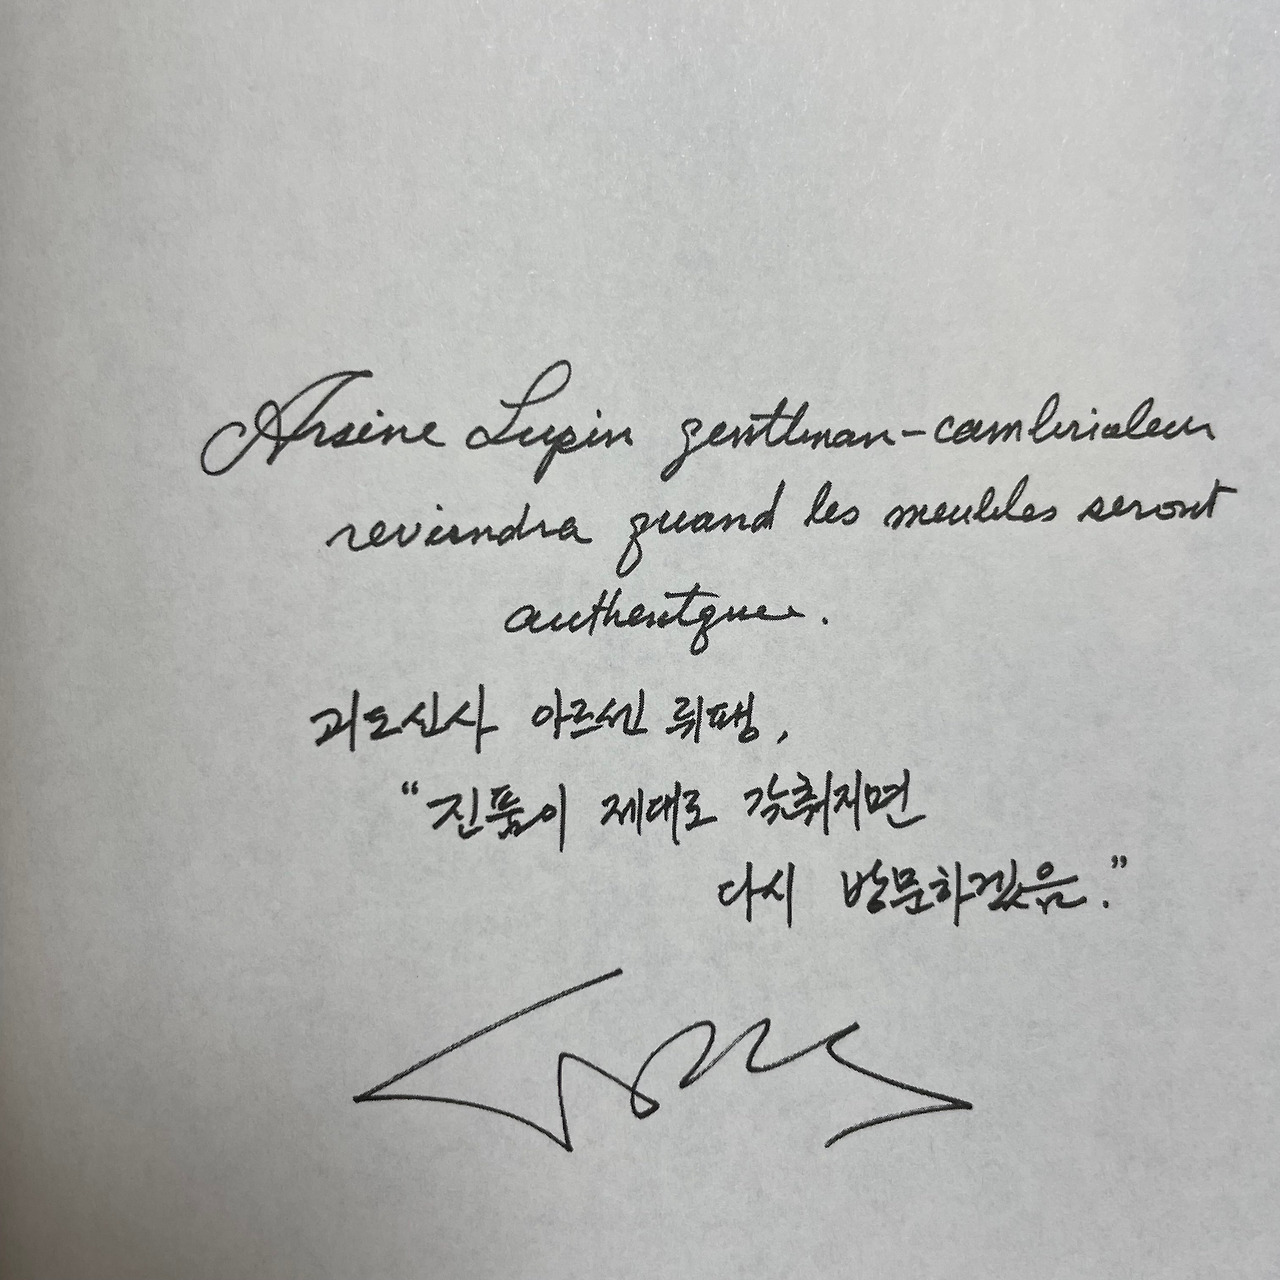 Arsène Lupin gentlman-cambrioleur
reviendra quand les meubles seront
authentques.
괴도신사 아르센 뤼팽,
“진품이 제대로 갖춰지면
다시 방문하겠음.”